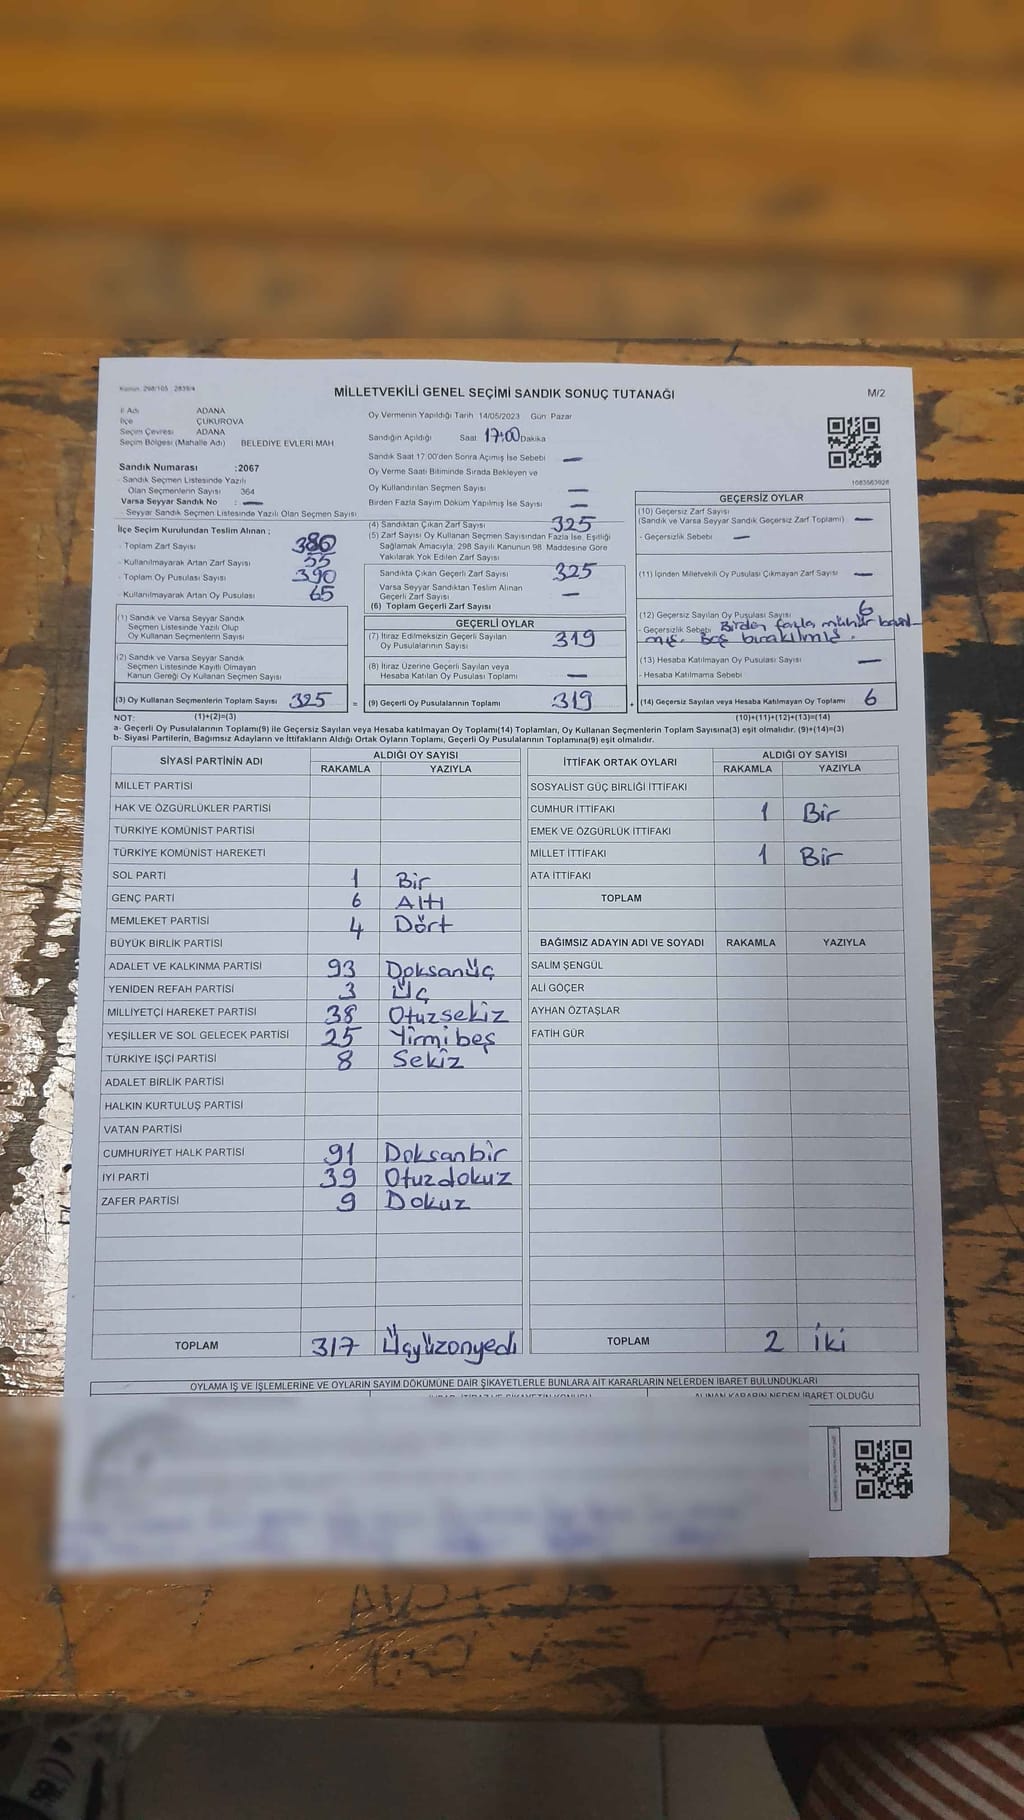 Kanun: 298/105 : 2839/4
MİLLETVEKİLİ GENEL SEÇİMİ SANDIK SONUÇ TUTANAĞI
M/2
İl Adı ADANA
İlçe ÇUKUROVA
Seçim Çevresi ADANA
Seçim Bölgesi (Mahalle Adı) BELEDİYE EVLERİ MAH
Sandık Numarası :2067
- Sandık Seçmen Listesinde Yazılı
Olan Seçmenlerin Sayısı 364
Varsa Seyyar Sandık No : —
- Seyyar Sandık Seçmen Listesinde Yazılı Olan Seçmen Sayısı
İlçe Seçim Kurulundan Teslim Alınan :
- Toplam Zarf Sayısı 380
- Kullanılmayarak Artan Zarf Sayısı 55
- Toplam Oy Pusulası Sayısı 390
- Kullanılmayarak Artan Oy Pusulası 65
(1) Sandık ve Varsa Seyyar Sandık
Seçmen Listesinde Yazılı Olup
Oy Kullanan Seçmenlerin Sayısı
(2) Sandık ve Varsa Seyyar Sandık
Seçmen Listesinde Kayıtlı Olmayan
Kanun Gereği Oy Kullanan Seçmen Sayısı
(3) Oy Kullanan Seçmenlerin Toplam Sayısı 325 =
(1)+(2)=(3)
Oy Vermenin Yapıldığı Tarih 14/05/2023 Gün Pazar
Sandığın Açıldığı Saat 17:00 Dakika
Sandık Saat 17.00'den Sonra Açılmış İse Sebebi —
Oy Verme Saati Bitiminde Sırada Bekleyen ve
Oy Kullandırılan Seçmen Sayısı —
Birden Fazla Sayım Döküm Yapılmış İse Sayısı —
(4) Sandıktan Çıkan Zarf Sayısı 325
(5) Zarf Sayısı Oy Kullanan Seçmen Sayısından Fazla İse, Eşitliği
Sağlamak Amacıyla, 298 Sayılı Kanunun 98. Maddesine Göre
Yakılarak Yok Edilen Zarf Sayısı
Sandıkta Çıkan Geçerli Zarf Sayısı 325
Varsa Seyyar Sandıktan Teslim Alınan
Geçerli Zarf Sayısı —
(6) Toplam Geçerli Zarf Sayısı
GEÇERLİ OYLAR
(7) İtiraz Edilmeksizin Geçerli Sayılan
Oy Pusulalarının Sayısı 319
(8) İtiraz Üzerine Geçerli Sayılan veya
Hesaba Katılan Oy Pusulası Toplamı —
(9) Geçerli Oy Pusulalarının Toplamı 319 +
1083563928
GEÇERSİZ OYLAR
(10) Geçersiz Zarf Sayısı
(Sandık ve Varsa Seyyar Sandık Geçersiz Zarf Toplamı) —
- Geçersizlik Sebebi —
(11) İçinden Milletvekili Oy Pusulası Çıkmayan Zarf Sayısı —
(12) Geçersiz Sayılan Oy Pusulası Sayısı 6
- Geçersizlik Sebebi Birden fazla mühür basıl-
mış. Boş bırakılmış.
(13) Hesaba Katılmayan Oy Pusulası Sayısı —
- Hesaba Katılmama Sebebi
(14) Geçersiz Sayılan veya Hesaba Katılmayan Oy Toplamı 6
(10)+(11)+(12)+(13)=(14)
NOT:
a- Geçerli Oy Pusulalarının Toplamı(9) ile Geçersiz Sayılan veya Hesaba katılmayan Oy Toplamı(14) Toplamları, Oy Kullanan Seçmenlerin Toplam Sayısına(3) eşit olmalıdır. (9)+(14)=(3)
b- Siyasi Partilerin, Bağımsız Adayların ve İttifakların Aldığı Ortak Oyların Toplamı, Geçerli Oy Pusulalarının Toplamına(9) eşit olmalıdır.
SİYASİ PARTİNİN ADI ALDIĞI OY SAYISI
RAKAMLA YAZIYLA
MİLLET PARTİSİ
HAK VE ÖZGÜRLÜKLER PARTİSİ
TÜRKİYE KOMÜNİST PARTİSİ
TÜRKİYE KOMÜNİST HAREKETİ
SOL PARTİ 1 Bir
GENÇ PARTİ 6 Altı
MEMLEKET PARTİSİ 4 Dört
BÜYÜK BİRLİK PARTİSİ
ADALET VE KALKINMA PARTİSİ 93 Doksanüç
YENİDEN REFAH PARTİSİ 3 Üç
MİLLİYETÇİ HAREKET PARTİSİ 38 Otuzsekiz
YEŞİLLER VE SOL GELECEK PARTİSİ 25 Yirmibeş
TÜRKİYE İŞÇİ PARTİSİ 8 Sekiz
ADALET BİRLİK PARTİSİ
HALKIN KURTULUŞ PARTİSİ
VATAN PARTİSİ
CUMHURİYET HALK PARTİSİ 91 Doksanbir
İYİ PARTİ 39 Otuzdokuz
ZAFER PARTİSİ 9 Dokuz
TOPLAM 317 Üçyüzonyedi
İTTİFAK ORTAK OYLARI ALDIĞI OY SAYISI
RAKAMLA YAZIYLA
SOSYALİST GÜÇ BİRLİĞİ İTTİFAKI
CUMHUR İTTİFAKI 1 Bir
EMEK VE ÖZGÜRLÜK İTTİFAKI
MİLLET İTTİFAKI 1 Bir
ATA İTTİFAKI
TOPLAM
BAĞIMSIZ ADAYIN ADI VE SOYADI RAKAMLA YAZIYLA
SALİM ŞENGÜL
ALİ GÖÇER
AYHAN ÖZTAŞLAR
FATİH GÜR
TOPLAM 2 İki
OYLAMA İŞ VE İŞLEMLERİNE VE OYLARIN SAYIM DÖKÜMÜNE DAİR ŞİKAYETLERLE BUNLARA AİT KARARLARIN NELERDEN İBARET BULUNDUKLARI
ALINAN KARARIN NEDEN İBARET OLDUĞU